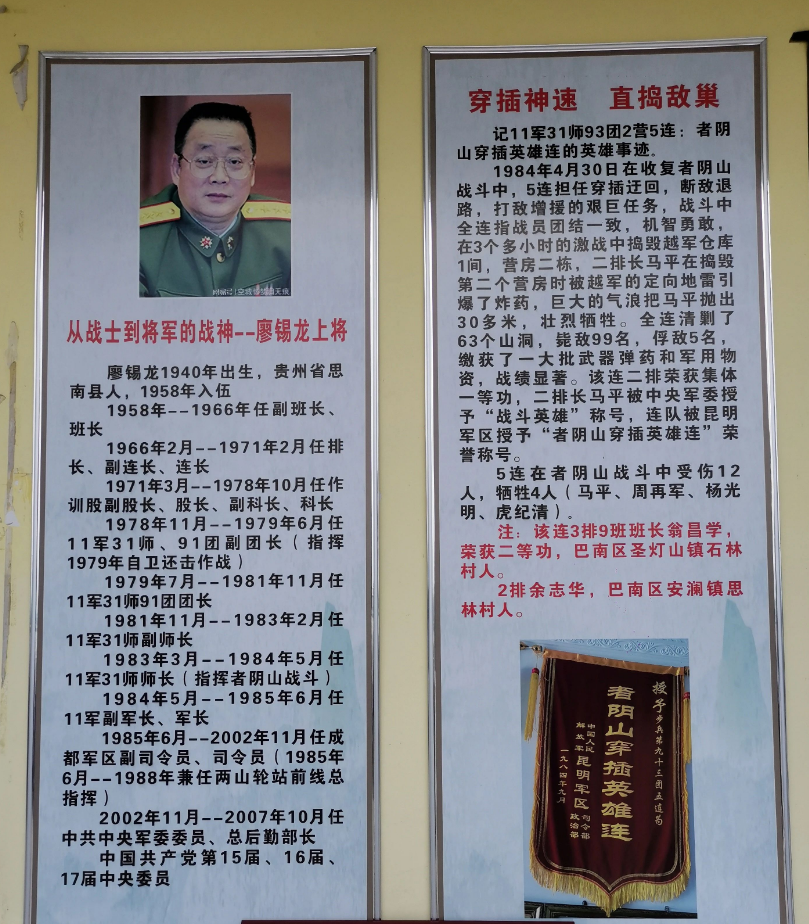 从战士到将军的战神--廖锡龙上将
廖锡龙1940年出生，贵州省思
南县人，1958年入伍
1958年--1966年任副班长、
班长
1966年2月--1971年2月任排
长、副连长、连长
1971年3月--1978年10月任作
训股副股长、股长、副科长、科长
1978年11月--1979年6月任
11军31师、91团副团长（指挥
1979年自卫还击作战）
1979年7月--1981年11月任
11军31师91团团长
1981年11月--1983年2月任
11军31师副师长
1983年3月--1984年5月任
11军31师师长（指挥者阴山战斗）
1984年5月--1985年6月任
11军副军长、军长
1985年6月--2002年11月任成
都军区副司令员、司令员（1985年
6月--1988年兼任两山轮站前线总
指挥）
2002年11月--2007年10月任
中共中央军委委员、总后勤部长
中国共产党第15届、16届、
17届中央委员
穿插神速　直捣敌巢
记11军31师93团2营5连：者阴
山穿插英雄连的英雄事迹。
1984年4月30日在收复者阴山
战斗中，5连担任穿插迂回，断敌退
路，打敌增援的艰巨任务，战斗中
全连指战员团结一致，机智勇敢，
在3个多小时的激战中捣毁越军仓库
1间，营房二栋，二排长马平在捣毁
第二个营房时被越军的定向地雷引
爆了炸药，巨大的气浪把马平抛出
30多米，壮烈牺牲。全连清剿了
63个山洞，毙敌99名，俘敌5名，
缴获了一大批武器弹药和军用物
资，战绩显著。该连二排荣获集体
一等功，二排长马平被中央军委授
予“战斗英雄”称号，连队被昆明
军区授予“者阴山穿插英雄连”荣
誉称号。
5连在者阴山战斗中受伤12
人，牺牲4人（马平、周再军、杨光
明、虎纪清）。
注：该连3排9班班长翁昌学，
荣获二等功，巴南区圣灯山镇石林
村人。
2排余志华，巴南区安澜镇思
林村人。
授予步兵第九十三团五连为
者阴山穿插英雄连
中国人民
解放军
昆明军区
司令部
政治部
一九八四年九月